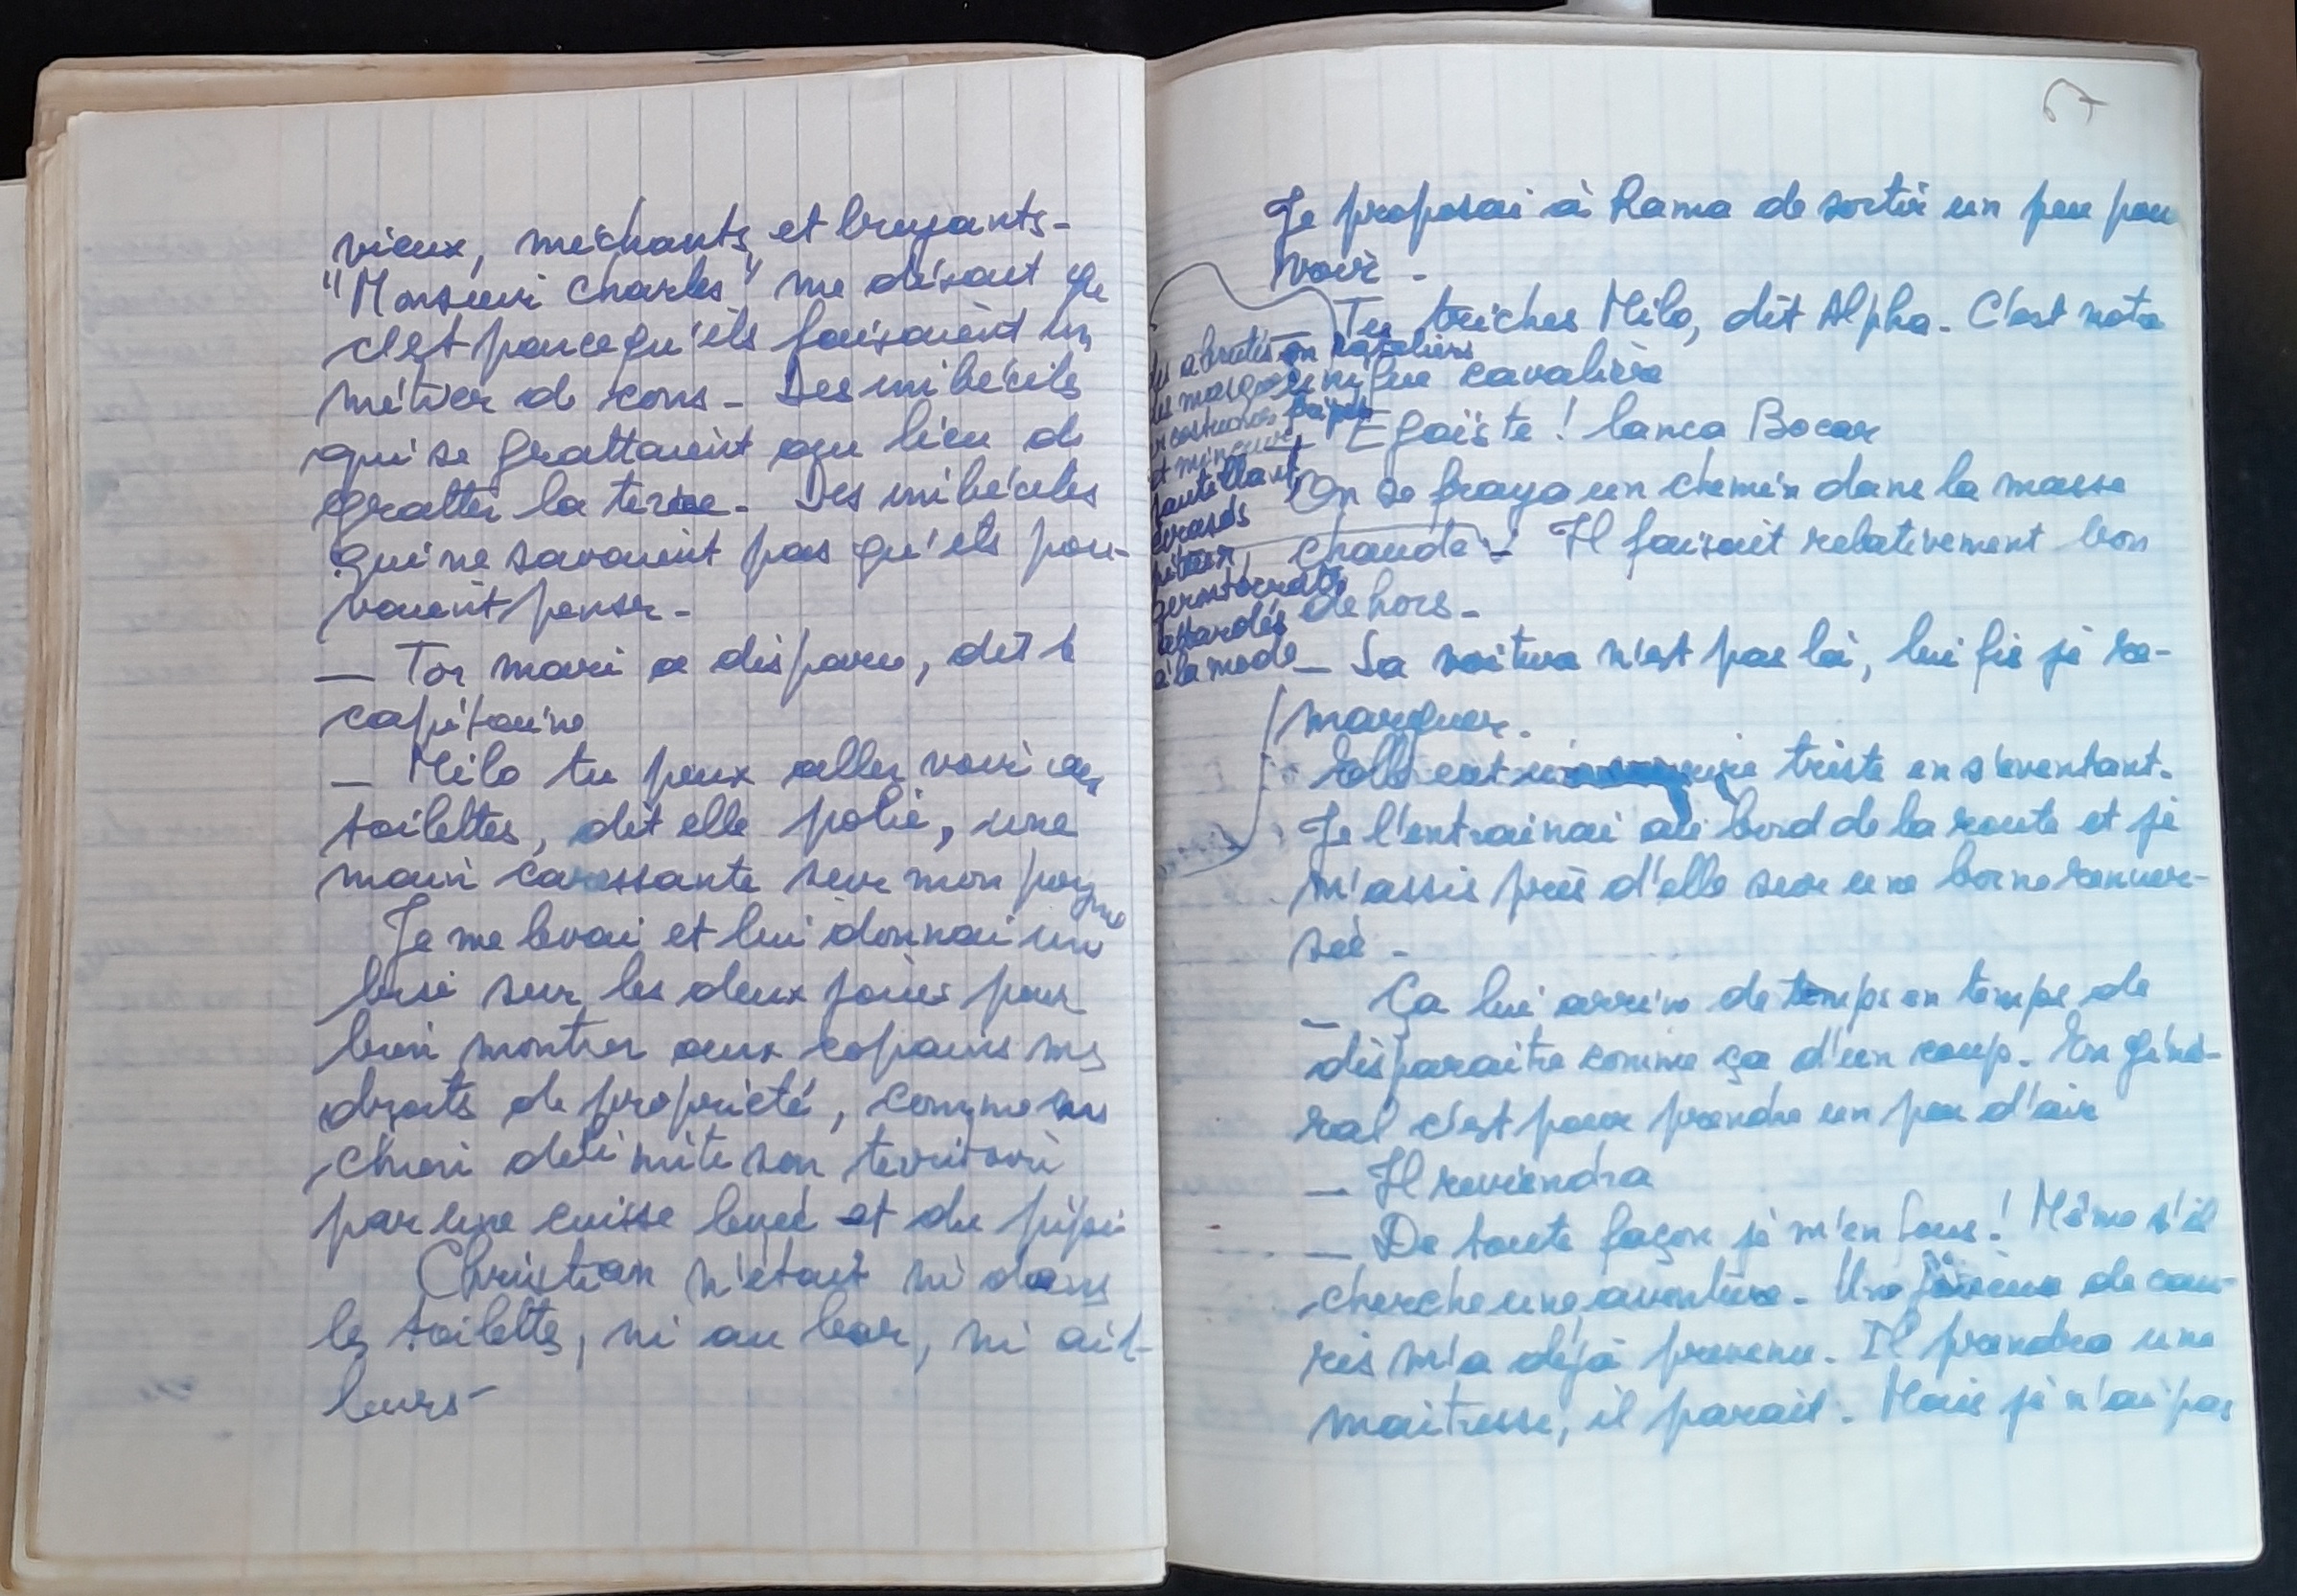 vieux, méchants et bruyants -
"Monsieur Charles" me disait que
c'est parce qu'ils faisaient un
métier de cons - Des imbéciles
qui se grattaient au lieu de
gratter la terre - Des imbéciles
qui ne savaient pas qu'ils pou-
vaient penser -
— Ton mari a disparu, dit le
capitaine
— Milo tu peux aller voir aux
toilettes, dit elle polie, une
main caressante sur mon poignet
Je me levai et lui donnai une
bise sur les deux joues pour
bien montrer aux copains mes
droits de propriété, comme un
chien délimite son territoire
par une cuisse levée et du pipi
Christian n'était ni dans
les toilettes, ni au bar, ni ail-
leurs -
67
Je proposai à Rama de sortir un peu pour
voir -
— Tu triches Milo, dit Alpha - C'est notre
unique cavalière
— Egoïste ! lança Bocar
On se fraya un chemin dans la masse
chaude - Il faisait relativement bon
dehors -
— Sa voiture n'est pas là, lui fis je re-
marquer.
Elle eut un sourire triste en s'eventant.
Je l'entrainai au bord de la route et je
m'assis près d'elle sur une borne renver-
sée -
— Ça lui arrive de temps en temps de
disparaitre comme ça d'un coup. En géné-
ral c'est pour prendre un peu d'air
— Il reviendra
— De toute façon je m'en fous ! Même s'il
cherche une aventure - Une de cau-
ris m'a déjà prevenu. Il prendra une
maitresse, il parait. Mais je n'ai pas
abrutis en
costumes
et
sautillant
attardés
à la mode